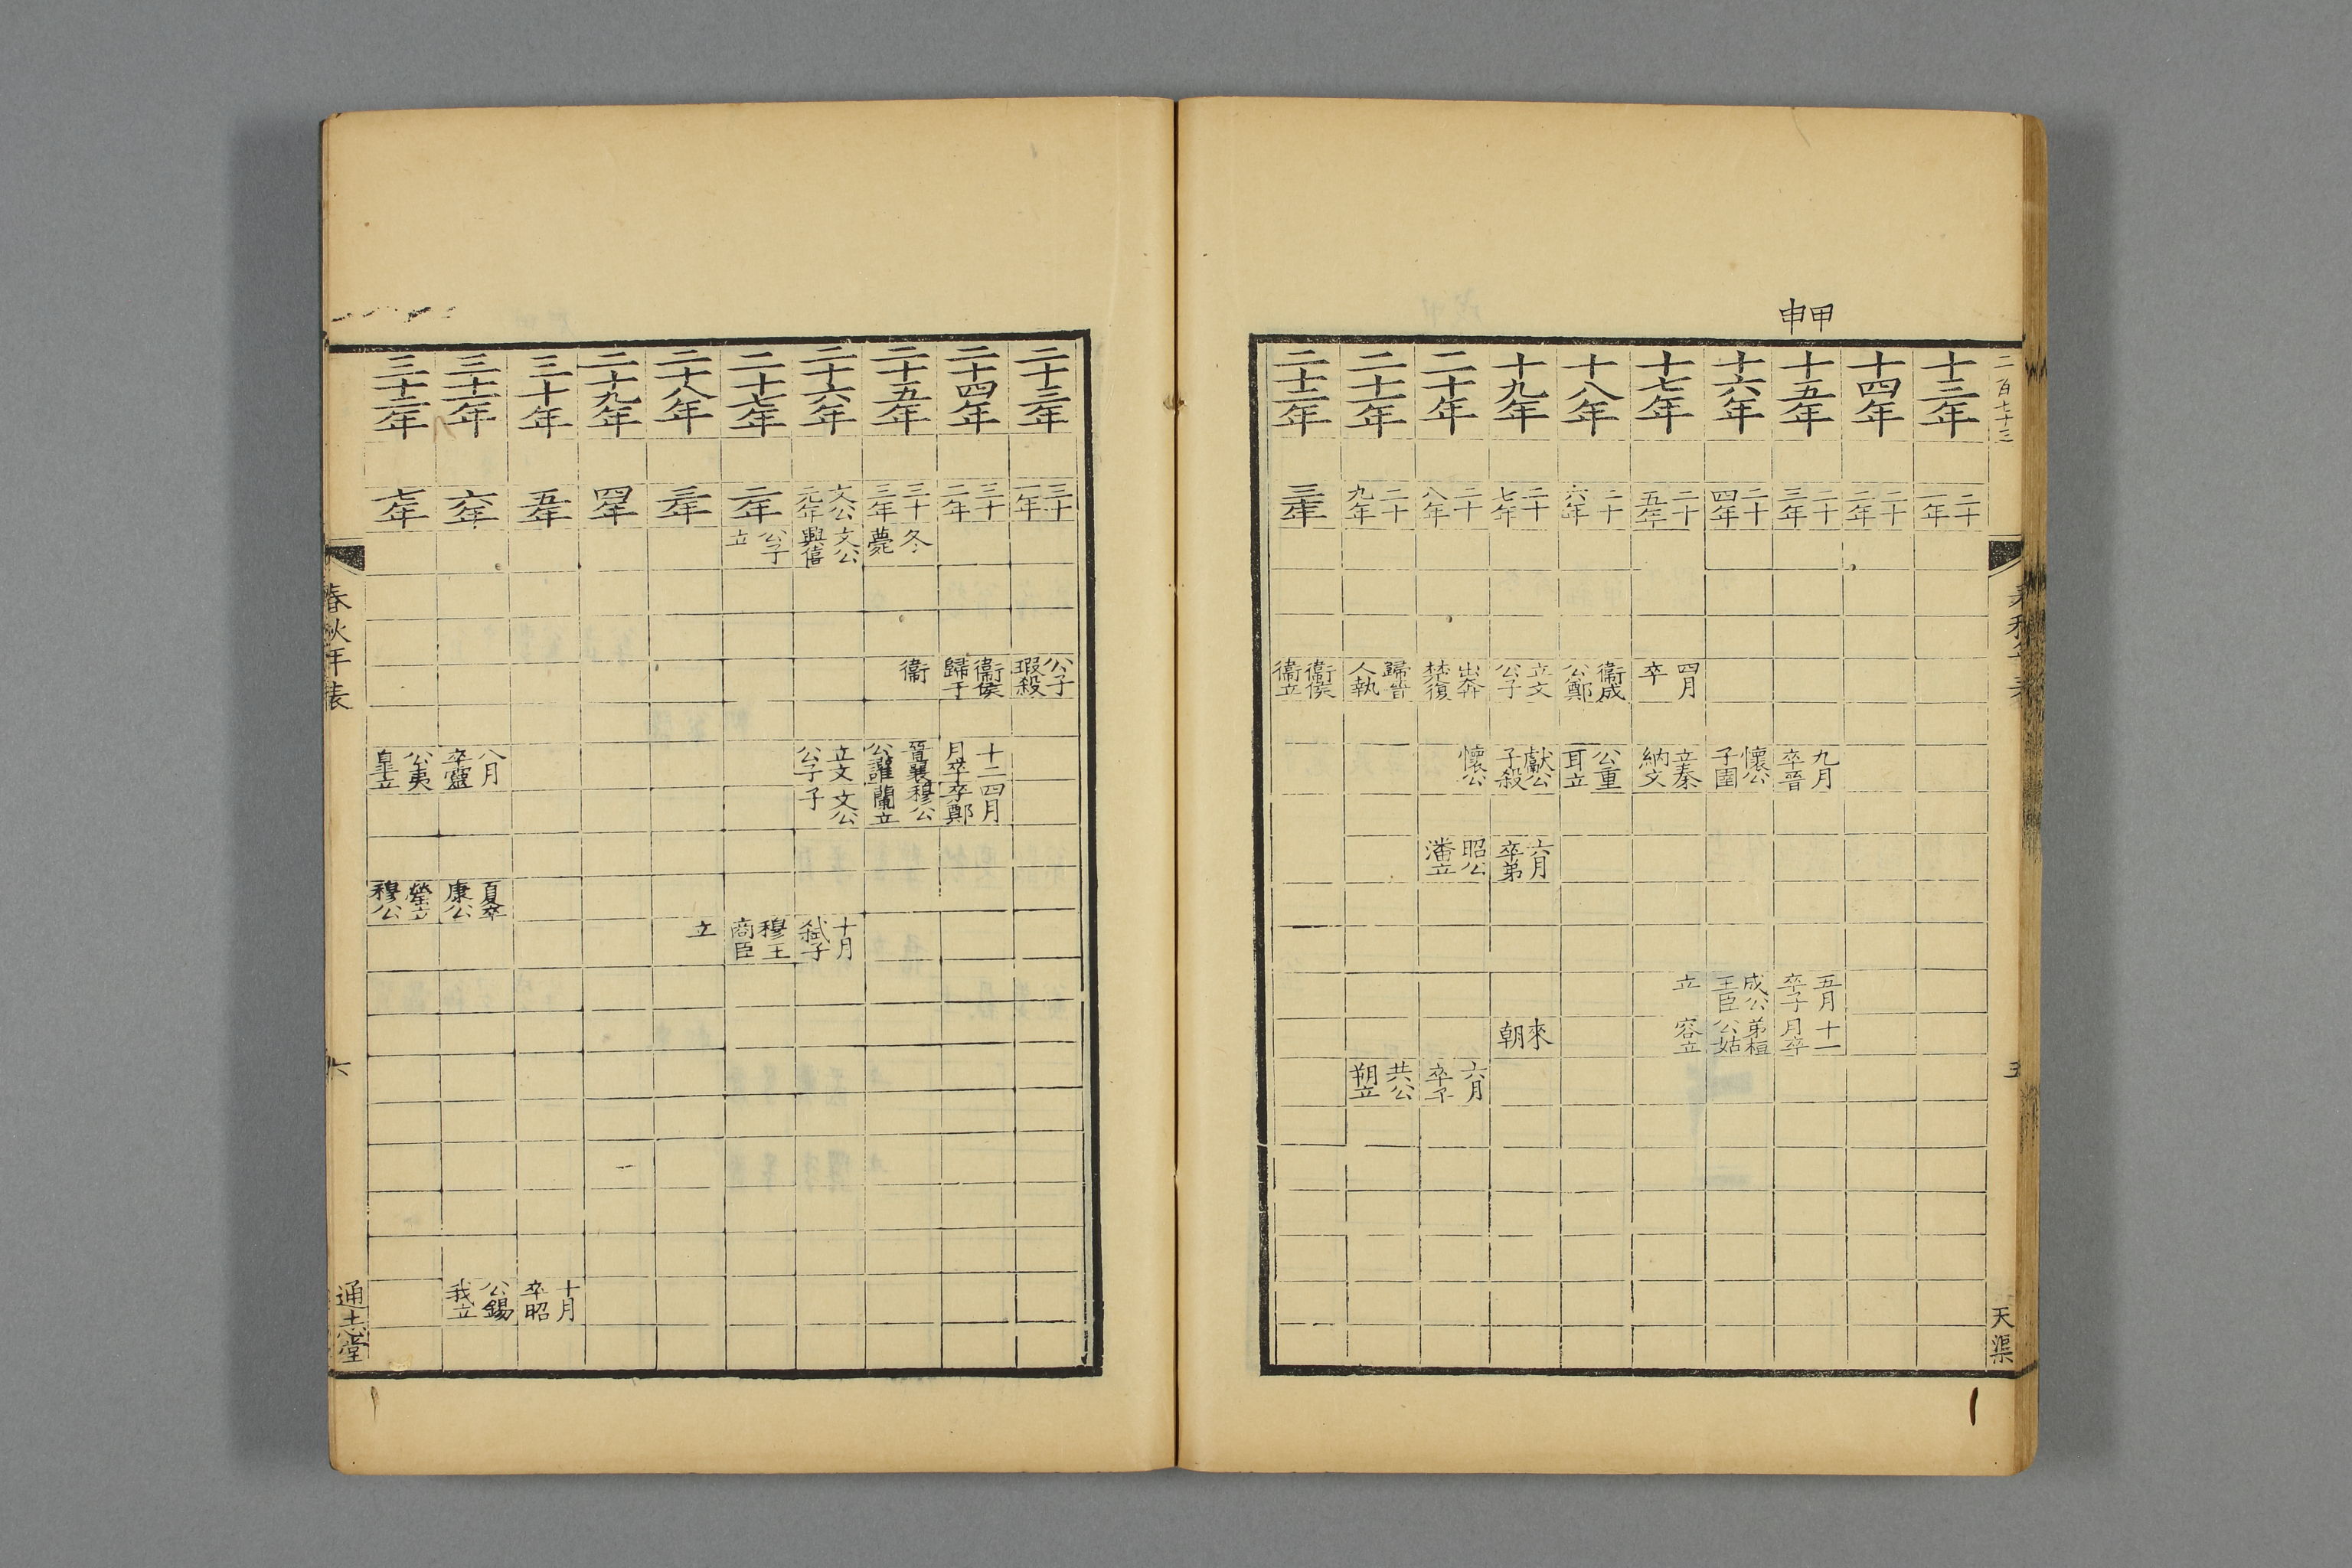 甲申
二百七十三
五
天渠
十三年 二十一年
十四年 二十二年
十五年 二十三年 九月卒晉 五月卒子 十一月卒
十六年 二十四年 懷公子圉 成公王臣 弟桓公姑
十七年 二十五年 四月卒 立秦納文 立 容立
十八年 二十六年 衞成公鄭 公重耳立
十九年 二十七年 立文公子 獻公子殺 六月卒弟 來朝
二十年 二十八年 出奔楚復 懷公 昭公潘立 六月卒子
二十一年 二十九年 歸晉人執 共公朔立
二十二年 三十年 衞侯衞立
二十三年 三十一年 公子瑕殺
二十四年 三十二年 衞侯歸于 十二月卒 四月卒鄭
二十五年 三十三年 冬薨 衞 晉襄公讙 穆公蘭立
二十六年 文公元年 文公興僖 立文公子 文公子 十月弑子
二十七年 二年 公子立 穆王商臣
二十八年 三年 立
二十九年 四年
三十年 五年 十月卒昭
三十一年 六年 八月卒靈 夏卒康公 公錫我立
三十二年 七年 公夷皐立 罃立穆公
春秋年表
六
通志堂